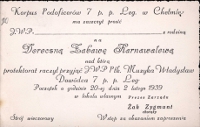 Korpus Podoficerów 7 p. p. Leg. w Chełmie
ma zaszczyt prosić
JWP. z rodziną
na
Doroczną Zabawę Karnawałową
nad którą
protektorat raczył przyjąć JWP Płk. Muzyka Władysław
Dowódca 7 p. p. Leg.
Początek o godzinie 20-ej dnia 2 lutego 1939
w lokalu własnym
Prezes Zarządu
Żak Zygmunt
Strój wieczorowy
Wstęp za okazaniem zaproszenia